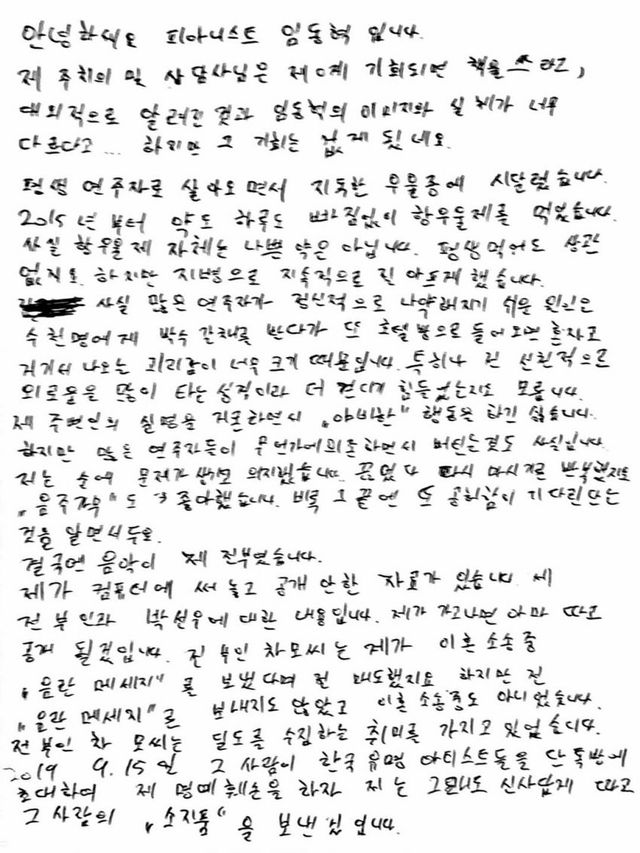 안녕하세요 피아니스트 임동혁 입니다.
제 주치의 및 상담사님은 제에게 기회되면 책을 쓰라고,
대외적으로 알려진 것과 임동혁의 이미지와 실체가 너무
다르다고... 하지만 그 기회는 없게 됐네요.
평생 연주자로 살아오면서 지독한 우울증에 시달렸습니다.
2015년부터 약도 하루도 빠짐없이 항우울제를 먹었습니다.
사실 항우울제 자체는 나쁜 약은 아닙니다. 평생먹어도 상관
없지요. 하지만 지병으로 지속적으로 전 아프게 했습니다.
사실 많은 연주자가 정신적으로 나약해지기 쉬운 원인은
수천명에게 박수 갈채를 받다가 또 호텔 방으로 들어오면 혼자고
거기서 나오는 괴리감이 너무 크기 때문입니다. 특히나 전 선천적으로
외로움을 많이 타는 성격이라 더 견디기 힘들었는지도 모릅니다.
제 주변인의 실명을 거론하면서 „야비한“ 행동은 하긴 싫습니다.
하지만 많은 연주자들이 무언가에 의존하면서 버틴는것도 사실입니다.
저는 술에 문제가 생기고 의지했습니다. 끊었다 다시 마시기를 반복했지요
„음주가무“도 좋아했습니다. 비록 그 끝엔 또 공허함이 기다린다는
것을 알면서두요.
결국엔 음악이 제 전부였습니다.
제가 컴퓨터에 써 놓고 공개 안한 자료가 있습니다. 제
전 부인과 박선우에 대한 내용입니다. 제가 가고나면 아마 따로
공개 될것입니다. 전 부인 차모씨는 제가 이혼 소송중
„음란 메세지“를 보냈다며 절 매도했지요 하지만 전
„음란 메세지“를 보내지도 않았고 이혼 소송중도 아니었습니다.
전부인 차 모씨는 딜도를 수집하는 취미를 가지고 있었습니다.
2019 9.15일 그 사람이 한국 유명 아티스트들을 단톡방에
초대하여 제 명예훼손을 하자 저는 그때도 신사답게 따로
그 사람의 „소지품“을 보낸 겁니다.